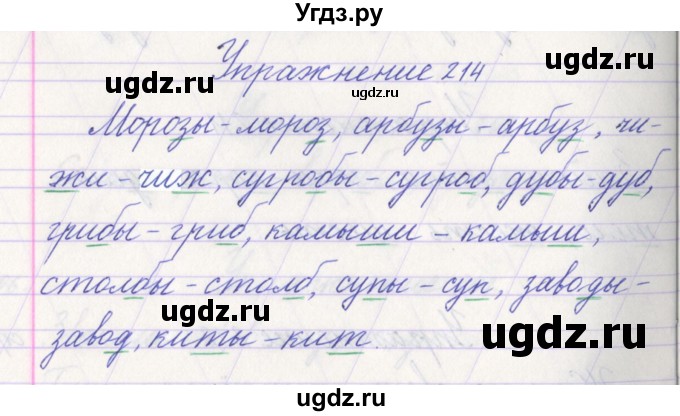 Угдз.ру
Упражнение 214
ugdz.ru ugdz.ru ugdz.ru
Морозы - мороз, арбузы - арбуз, чи-
жи - чиж, сугробы - сугроб, дубы - дуб,
ugdz.ru ugdz.ru
грибы - гриб, камыши - камыш,
столбы - столб, супы - суп, заводы -
ugdz.ru ugdz.ru
завод, киты - кит.
ugdz.ru
ugdz.ru